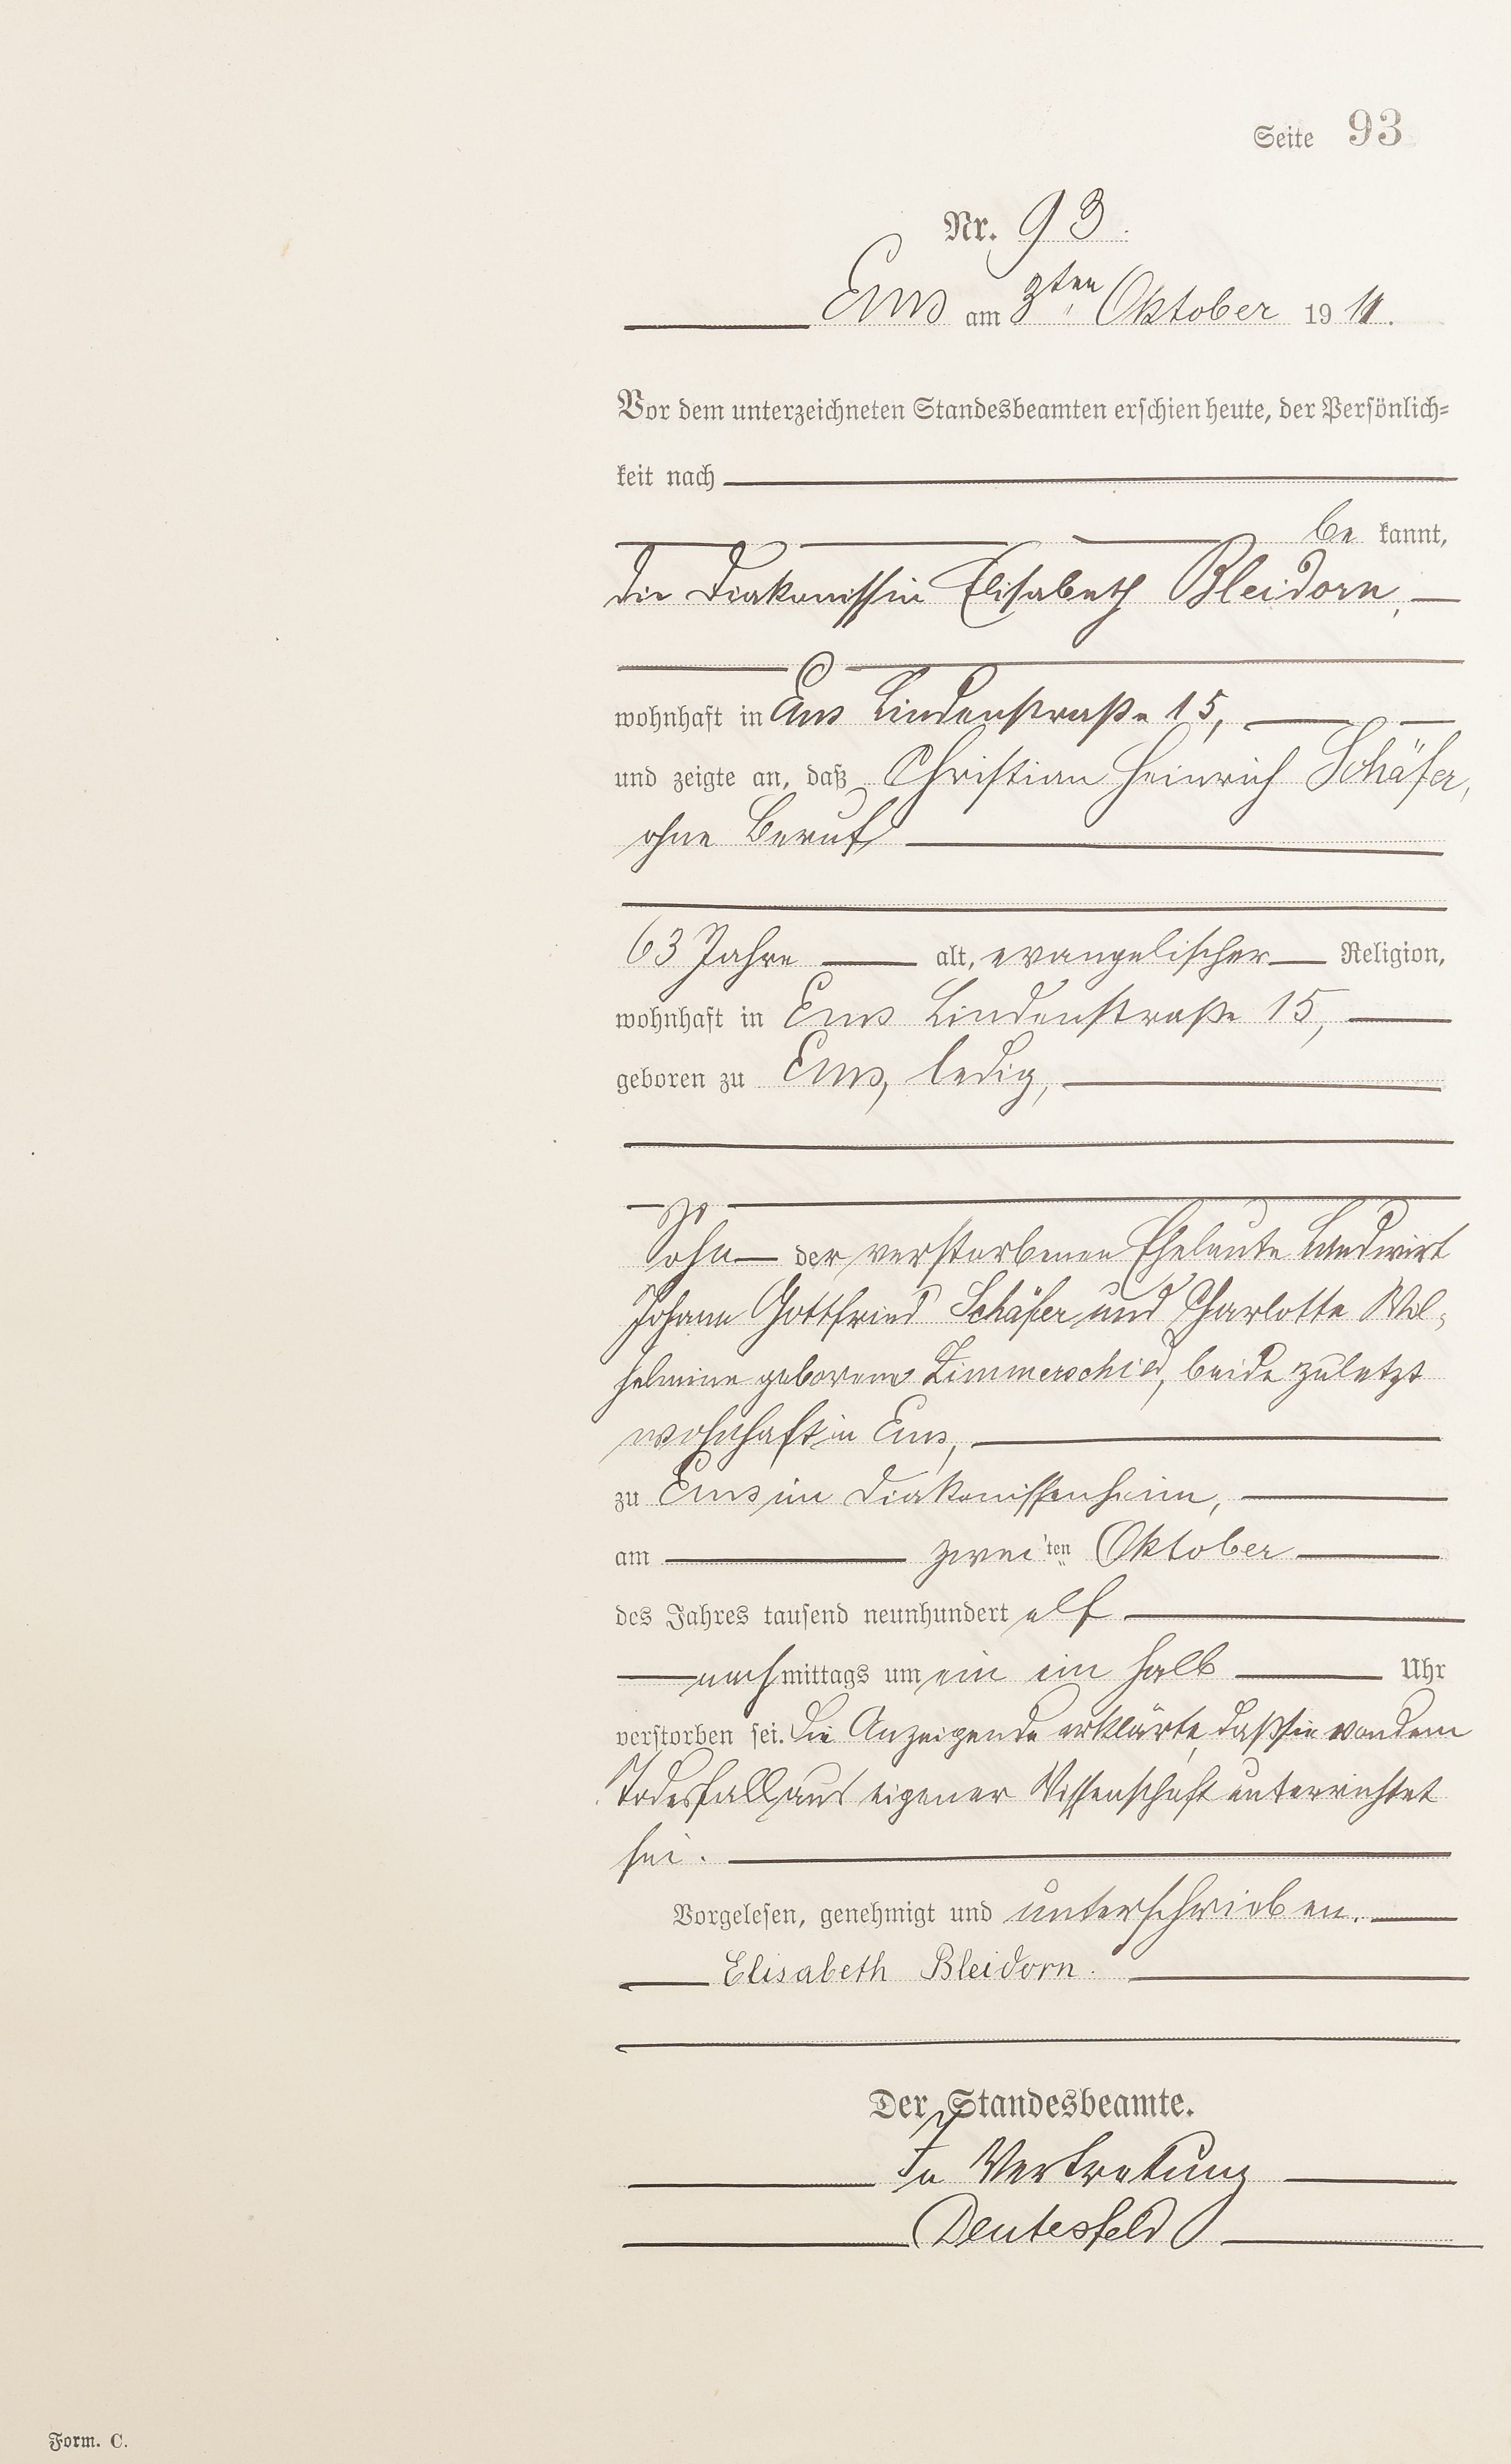 Seite 93
Nr. 93.
Ems am 3ten Oktober 1911.
Vor dem unterzeichneten Standesbeamten erschien heute, der Persönlich=
keit nach
be kannt,
die Diakonissin Elisabeth Bleidorn,
wohnhaft in Ems Lindenstraße 15,
und zeigte an, daß Christian Heinrich Schäfer,
ohne Beruf
63 Jahre alt, evangelischer Religion,
wohnhaft in Ems Lindenstraße 15,
geboren zu Ems, ledig,
Sohn der verstorbenen Eheleute Landwirt
Johann Gottfried Schäfer und Charlotte Wil-
helmine geborene Zimmerschied, beide zuletzt
wohnhaft in Ems,
zu Ems im Diakonissenheim,
am zwei ten Oktober
des Jahres tausend neunhundert elf
nach mittags um ein ein halb Uhr
verstorben sei. Die Anzeigende erklärte, daß sie von dem
Todesfall aus eigener Wissenschaft unterrichtet
sei.
Vorgelesen, genehmigt und unterschrieben.
Elisabeth Bleidorn.
Der Standesbeamte.
In Vertretung
Deutesfeld
Form. C.